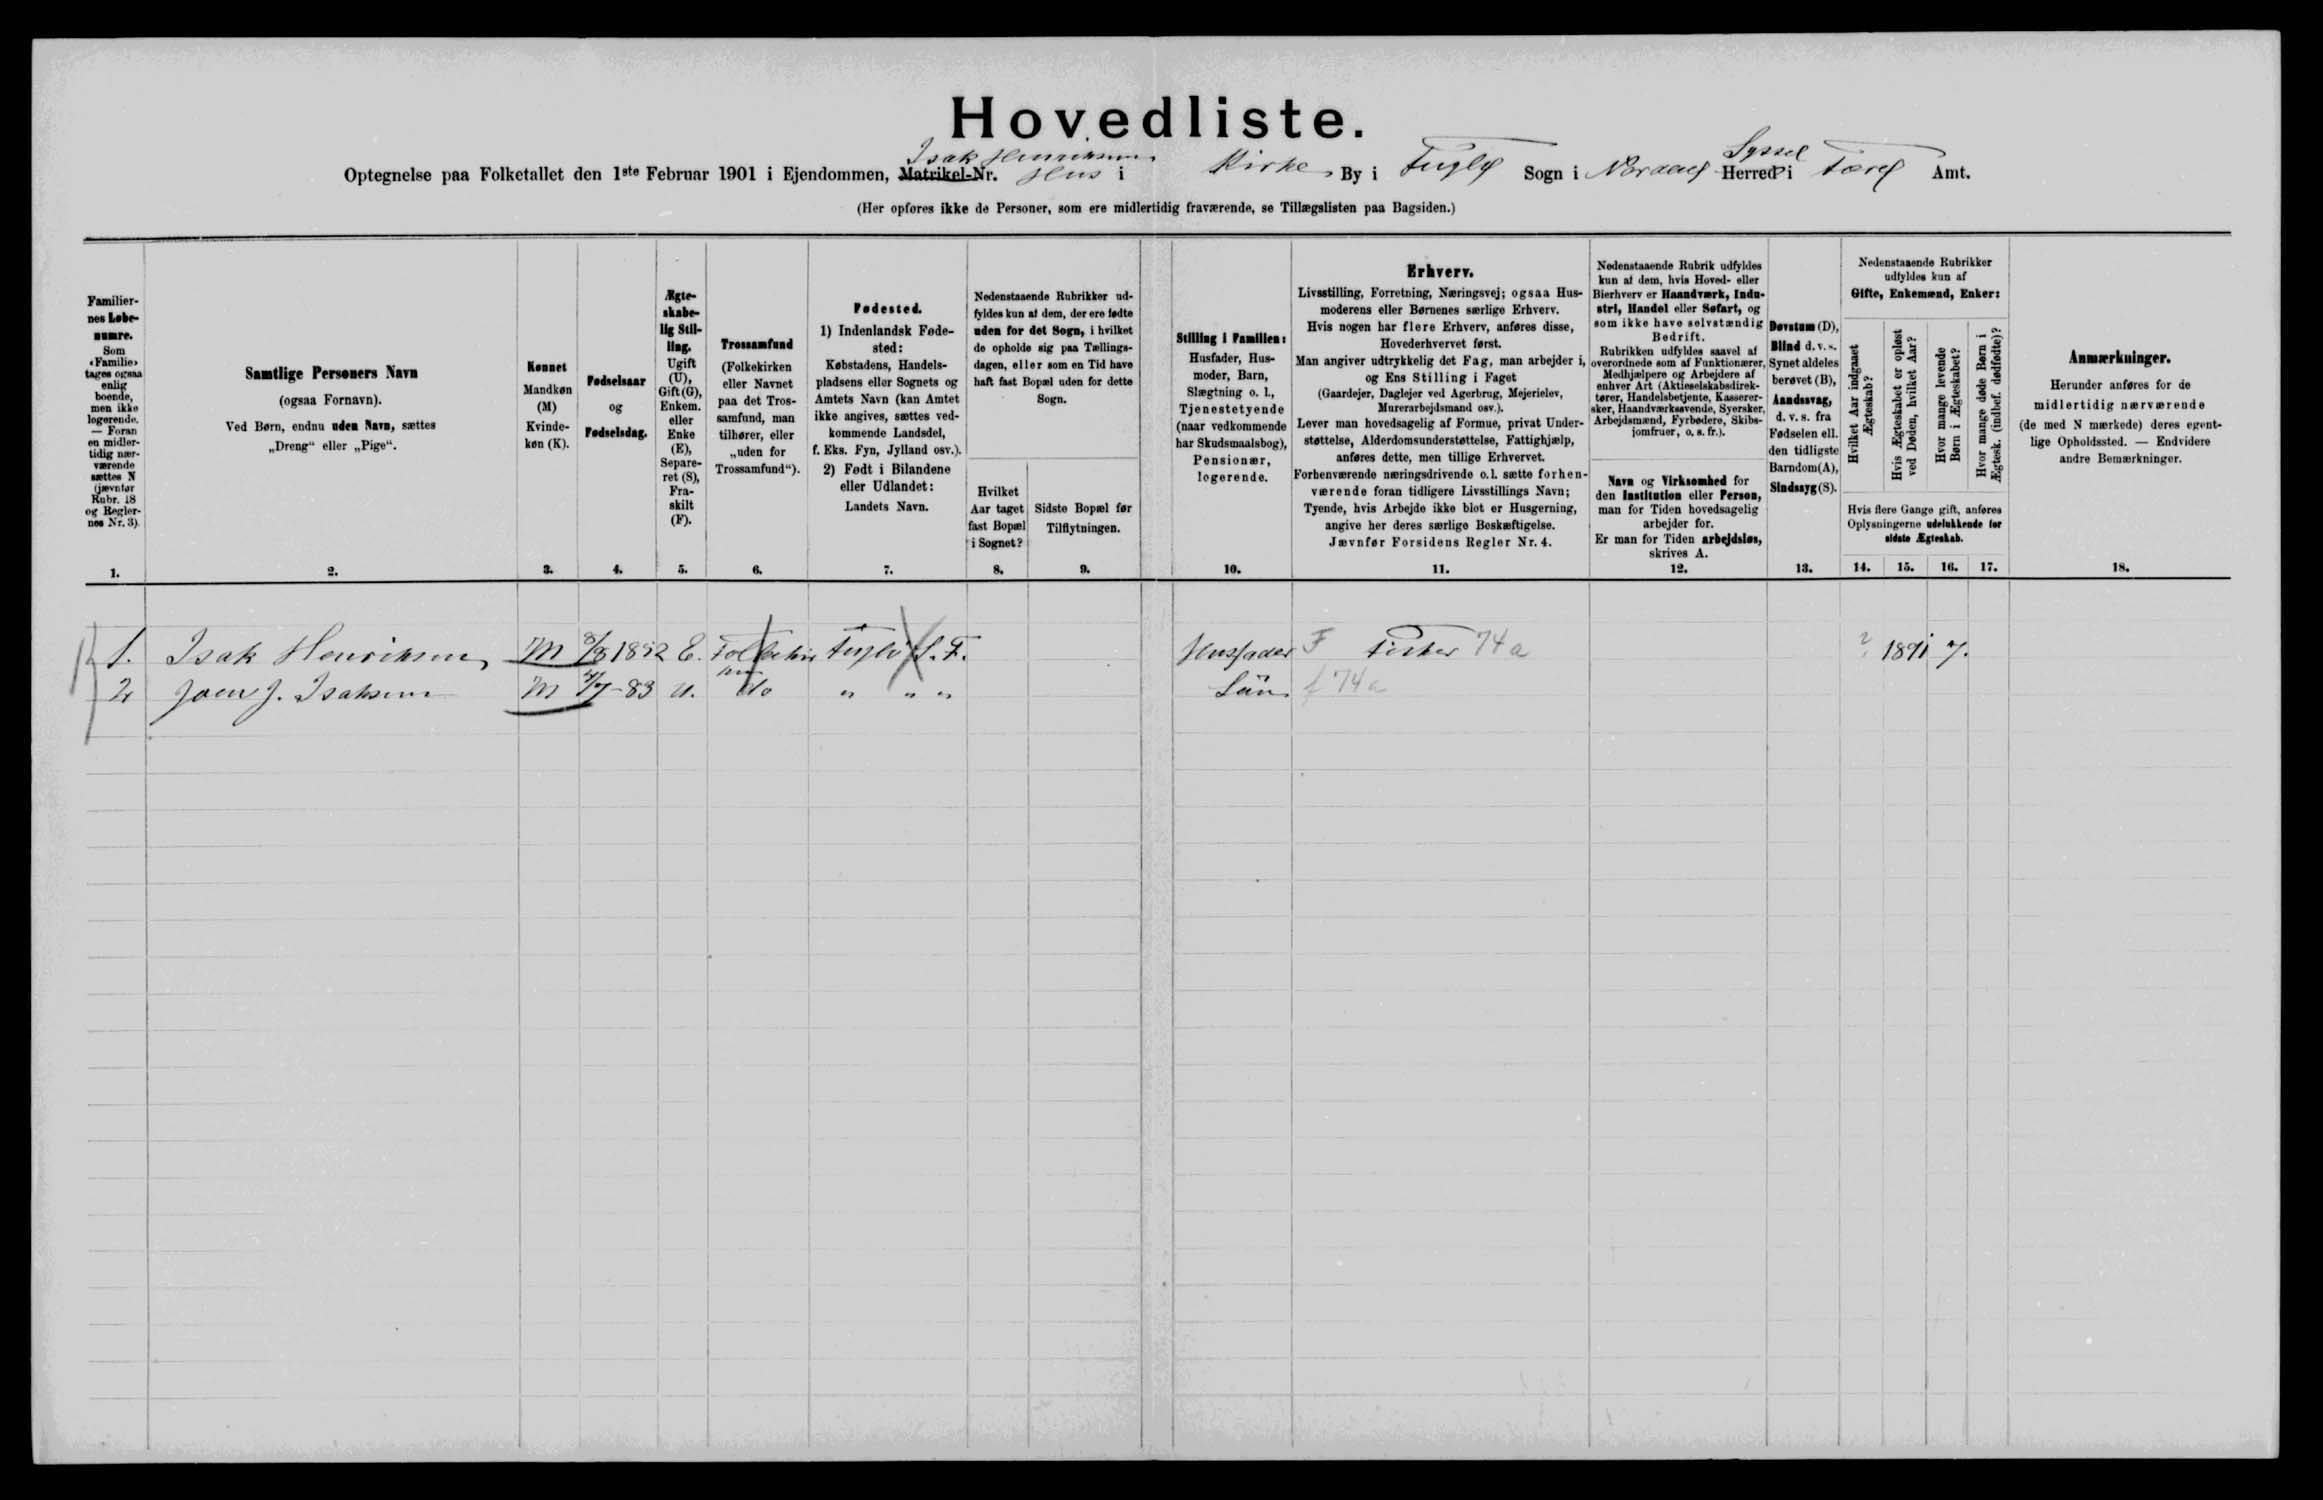 Hovedliste.
Isak Henriksens Syssel
Optegnelse paa Folketallet den 1ste Februar 1901 i Ejendommen, Matrikel-Nr. Hus i Kirke By i Fuglø Sogn i Norderø Herred i Færø Amt.
(Her opføres ikke de Personer, som ere midlertidig fraværende, se Tillægslisten paa Bagsiden.)
Familiernes Løbenumre.
Som «Familie» tages ogsaa enlig boende, men ikke logerende. — Foran en midlertidig nærværende sættes N (jævnfør Rubr. 18 og Reglernes Nr. 3).
1.
Samtlige Personers Navn
(ogsaa Fornavn).
Ved Børn, endnu uden Navn, sættes
„Dreng“ eller „Pige“.
2.
Kønnet
Mandkøn (M)
Kvindekøn (K).
3.
Fødselsaar
og
Fødselsdag.
4.
Ægteskabelig Stilling.
Ugift (U), Gift (G), Enkem. eller Enke (E), Separeret (S), Fraskilt (F).
5.
Trossamfund
(Folkekirken eller Navnet paa det Trossamfund, man tilhører, eller „uden for Trossamfund“).
6.
Fødested.
1) Indenlandsk Fødested:
Købstadens, Handelspladsens eller Sognets og Amtets Navn (kan Amtet ikke angives, sættes vedkommende Landsdel, f. Eks. Fyn, Jylland osv.).
2) Født i Bilandene eller Udlandet:
Landets Navn.
7.
Nedenstaaende Rubrikker udfyldes kun af dem, der ere fødte uden for det Sogn, i hvilket de opholde sig paa Tællingsdagen, eller som en Tid have haft fast Bopæl uden for dette Sogn.
Hvilket Aar taget fast Bopæl i Sognet?
8.
Sidste Bopæl før Tilflytningen.
9.
Stilling i Familien:
Husfader, Husmoder, Barn, Slægtning o. l., Tjenestetyende (naar vedkommende har Skudsmaalsbog), Pensionær, logerende.
10.
Erhverv.
Livsstilling, Forretning, Næringsvej; ogsaa Husmoderens eller Børnenes særlige Erhverv.
Hvis nogen har flere Erhverv, anføres disse, Hovederhvervet først.
Man angiver udtrykkelig det Fag, man arbejder i, og Ens Stilling i Faget
(Gaardejer, Daglejer ved Agerbrug, Mejerielev, Murerarbejdsmand osv.).
Lever man hovedsagelig af Formue, privat Understøttelse, Alderdomsunderstøttelse, Fattighjælp, anføres dette, men tillige Erhvervet.
Forhenværende næringsdrivende o.l. sætte forhenværende foran tidligere Livsstillings Navn;
Tyende, hvis Arbejde ikke blot er Husgerning, angive her deres særlige Beskæftigelse.
Jævnfør Forsidens Regler Nr. 4.
11.
Nedenstaaende Rubrik udfyldes kun af dem, hvis Hoved- eller Bierhverv er Haandværk, Industri, Handel eller Søfart, og som ikke have selvstændig Bedrift.
Rubrikken udfyldes saavel af overordnede som af Funktionærer, Medhjælpere og Arbejdere af enhver Art (Aktieselskabsdirektører, Handelsbetjente, Kasserersker, Haandværkssvende, Syersker, Arbejdsmænd, Fyrbødere, Skibsjomfruer, o. s. fr.).
Navn og Virksomhed for den Institution eller Person, man for Tiden hovedsagelig arbejder for.
Er man for Tiden arbejdsløs, skrives A.
12.
Døvstum (D), Blind d. v. s. Synet aldeles berøvet (B), Aandssvag, d. v. s. fra Fødselen ell. den tidligste Barndom (A), Sindssyg (S).
13.
Nedenstaaende Rubrikker udfyldes kun af
Gifte, Enkemænd, Enker:
Hvilket Aar indgaaet Ægteskab?
Hvis Ægteskabet er opløst ved Døden, hvilket Aar?
Hvor mange levende Børn i Ægteskabet?
Hvor mange døde Børn i Ægtesk. (indbef. dødfødte)?
Hvis flere Gange gift, anføres Oplysningerne udelukkende for sidste Ægteskab.
14. 15. 16. 17.
Anmærkninger.
Herunder anføres for de midlertidig nærværende (de med N mærkede) deres egentlige Opholdssted. — Endvidere andre Bemærkninger.
18.
1. Isak Henriksen M 8/8 1852 E. Fuglø S. F. Husfader F Fisker 74 a ? 1891 7.
2 Joen J. Isaksen M -83 U. do " " " Sön f 74 a